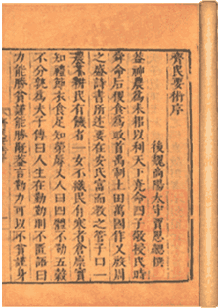 齊民要術序
後魏高陽太守賈思勰撰
蓋神農為耒耜以利天下堯命四子敬授民時
舜命后稷食為政首禹制土田萬國作乂殷周
之盛詩書所述要在安民富而教之管子曰一
農不耕民有飢者一女不織民有寒者倉廩實
知禮節衣食足知榮辱丈人曰四體不勤五穀
不分孰為夫子傳曰人生在勤勤則不匱語曰
力能勝貧謹能勝禍蓋言勤力可以不貧謹身